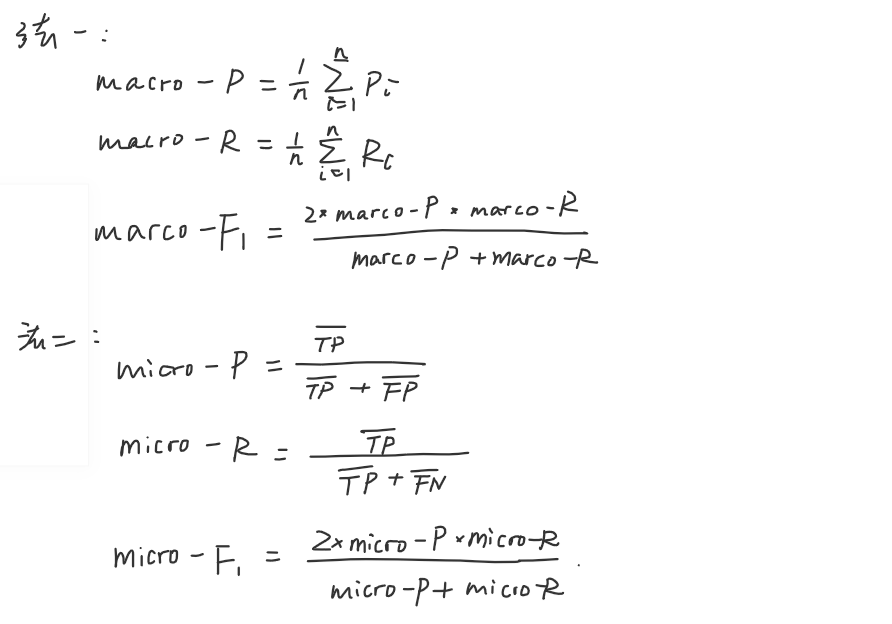 法一:
macro - P = \frac{1}{n} \sum_{i=1}^{n} P_i
macro - R = \frac{1}{n} \sum_{i=1}^{n} R_i
marco - F_1 = \frac{2 \times marco - P \times marco - R}{marco - P + marco - R}
法二:
micro - P = \frac{\overline{TP}}{\overline{TP} + \overline{FP}}
micro - R = \frac{\overline{TP}}{\overline{TP} + \overline{FN}}
micro - F_1 = \frac{2 \times micro - P \times micro - R}{micro - P + micro - R}.